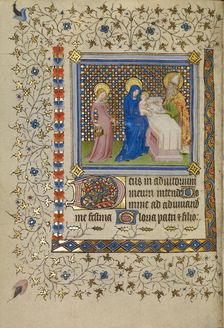 Deus in adiutorium
meum intende Do
mine ad adiuuand
me festina Gloria patri & filio